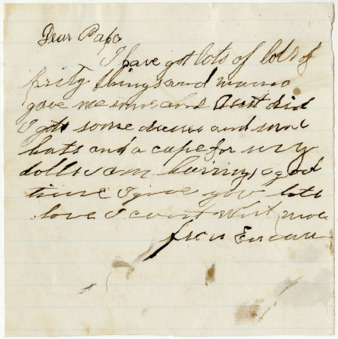 Dear Papa
I have got lots of lots of
prity things and mama
gave me some and Aunt did
I got some dresses and some
hats and a cape for my
dolls I am having a good
time I give you lots
love I can't write more
from